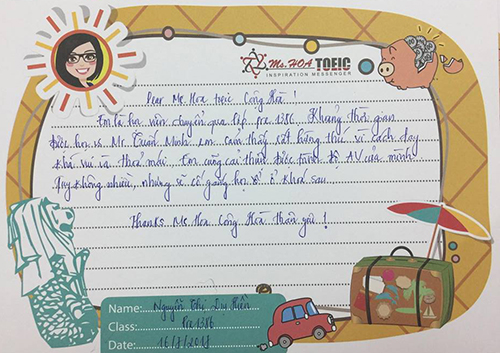 Ms.HOA TOEIC
INSPIRATION MESSENGER
Dear Ms Hoa toeic Cộng Hòa !
Em là học viên chuyển qua lớp Pre 1386. Khoảng thời gian
được học vs Mr Tuấn Minh, em cảm thấy rất hứng thú vì cách dạy
khá vui và thoải mái. Em cũng cải thiện được trình độ AV của mình
Tuy không nhiều, nhưng sẽ cố gắng học ở khóa sau
Thanks Ms Hoa Cộng Hòa thân yêu !
Name: Nguyễn Thị Duy
Class: Pre 1386
Date: